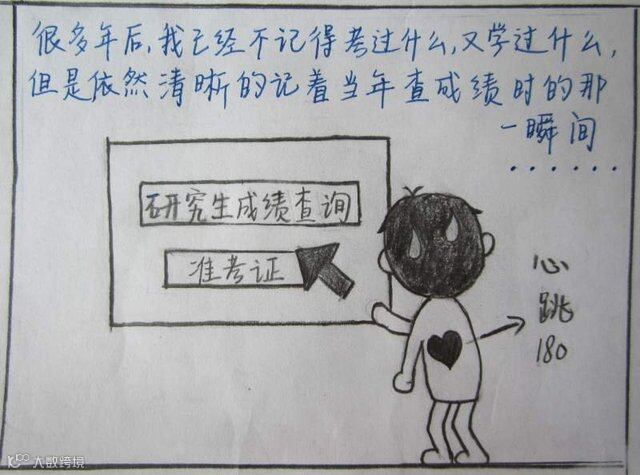 很多年后,我已经不记得考过什么,又学过什么,
但是依然清晰的记着当年查成绩时的那
一瞬间
......
研究生成绩查询
准考证
心
跳
180
大数跨境